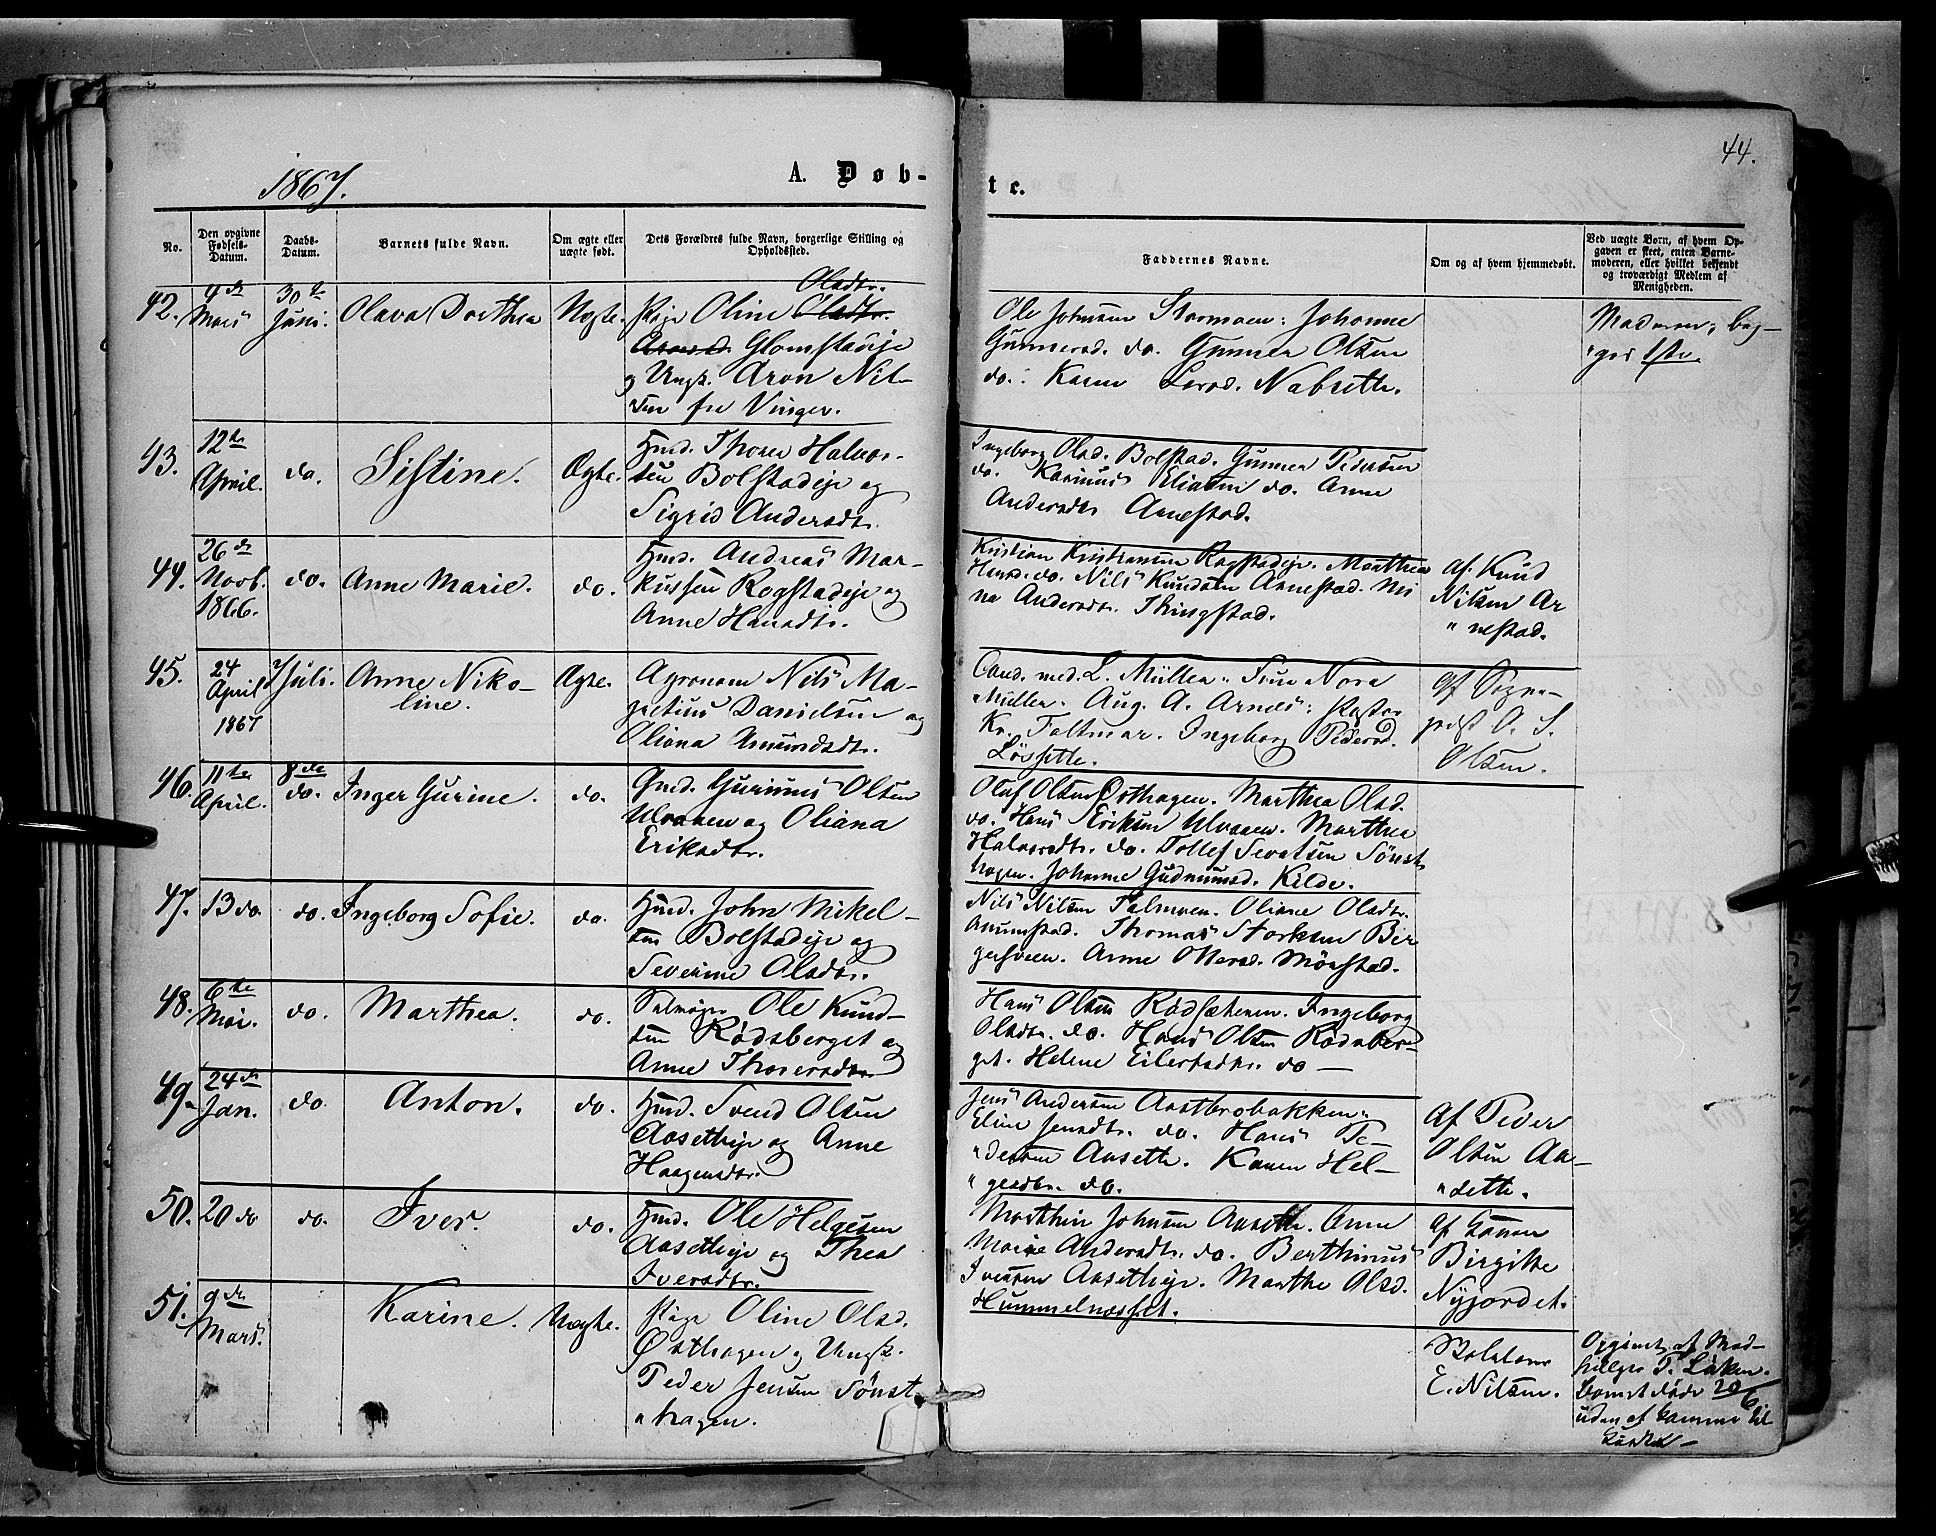 1867.
A. Døb-
te.
44.
No.
Den opgivne Fødsels-Datum.
Daabs-Datum.
Barnets fulde Navn.
Om ægte eller uægte født.
Dets Forældres fulde Navn, borgerlige Stilling og Opholdssted.
Faddernes Navne.
Om og af hvem hjemmedøbt.
Ved uægte Børn, af hvem Op-
gaven er skeet, enten Barne-
moderen, eller hvilket bekjendt
og troværdigt Medlem af
Menigheden.
42.
4de
Mars
30te
Juni.
Olava Dorthea
Uægte.
Pige Oline Olsdtr.
Glomstadeje
og Ungk. Aron Nil-
sen fra Vinger.
Ole Johnsen Stormoen: Johanne
Gunnersd. do. Gunner Olsen
do.: Karen Larsd. Nabsette.
Moderen; beg-
ges 1ste.
43.
12te
April.
do.
Sistine.
Ægte.
Hmd. Thorer Halvor-
sen Bolstadeje og
Sigrid Andersdtr.
Ingeborg Olsd. Bolstad. Gunner Pedersen
do. Karinus Eliasen do. Anne
Andersdtr Arnestad.
44.
26de
Novb.
1866.
do.
Anne Marie.
do.
Hmd. Andreas Mar-
kussen Rogstadeje og
Anne Hansdtr.
Kristian Kristiansen Rogstadeje. Marthea
Hansd. do. Nils Knudsen Arnestad. Ni
na Andersdtr. Thingstad.
Af Knud
Nilsen Ar
nestad.
45.
24
April
1867
7 Juli.
Anne Niko-
line.
Ægte.
Agronom Nils Ma-
gnetius Danielsen og
Oliana Amundsdtr.
Cand. med. L. Müller. Frue Nora
Müller. Aug. A. Arnes:
Kr. Foltmar. Ingeborg Pedersd.
Løssette.
Af Sogne-
prest O. S.
Olsen.
46.
11te
April.
8de
do.
Inger Gurine.
do.
Gmd. Gurinus Olsen
Ulvaaen og Oliana
Eriksdtr.
Oluf Olsen Østhagen. Marthea Olsd.
do. Hans Eriksen Ulvaaen. Marthea
Halvorsdtr. do. Tollef Sevatsen Sønst
hagen. Johanne Gudmunsd. Kilde.
47.
13 do.
do.
Ingeborg Sofie.
do.
Hmd. John Mikel-
sen Bolstadeje og
Severine Olsdtr.
Nils Nilsen Talmoen. Oliane Olsdtr.
Arnestad. Thomas Storksen Ber
gersveen. Anne Ottersd. Mørstad.
48.
6te
Mai.
do.
Marthea.
do.
Ole Knud-
sen Rødsberget og
Anne Thorersdtr
Hans Olsen Rødsæteren. Ingeborg
Olsdtr. do. Hans Olsen Rødsber-
get. Helene Eilertsdtr. do —
49.
24de
Jan.
do.
Anton.
do.
Hmd. Svend Olsen
Aasetteje og Anne
Haagensdtr.
Jens Andersen Aastbrobakken:
Eline Jensdtr. do. Hans Pe-
dersen Aasette. Karen Hel-
gesdtr. do.
Af Peder
Olsen Aa-
sette.
50.
20 do
do.
Iver.
do.
Hmd. Ole Helgesen
Aasetteje og Thea
Iversdtr.
Marthin Johnsen Aasette. Anne
Marie Andersdtr. do. Berthinus
Iversen Aasetteje. Marthe Olsd.
Hummelnæsset.
Af
Birgitte
Nyjordet.
51.
9de
Mars.
Karine.
Uægte.
Pige Oline Olsd.
Østhagen og Ungk.
Peder Jensen Sønst
hagen.
E. Nilsen.
Opgivet af Med-
hjelper T. Løken.
Barnet døde 20/6
uden at komme til
Kirke —